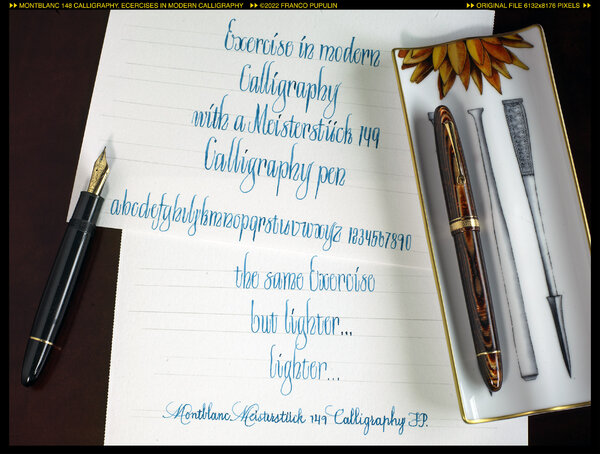 MONTBLANC 148 CALLIGRAPHY, ECERCISES IN MODERN CALLIGRAPHY ©2022 FRANCO PUPULIN
ORIGINAL FILE 6132x8176 PIXELS
Exercise in modern
Calligraphy
with a Meisterstück 149
Calligraphy pen
abcdefghijklmnopqrstuvwxyz 1234567890
the same Exercise
but lighter...
lighter...
Montblanc Meisterstück 149 Calligraphy F.P.